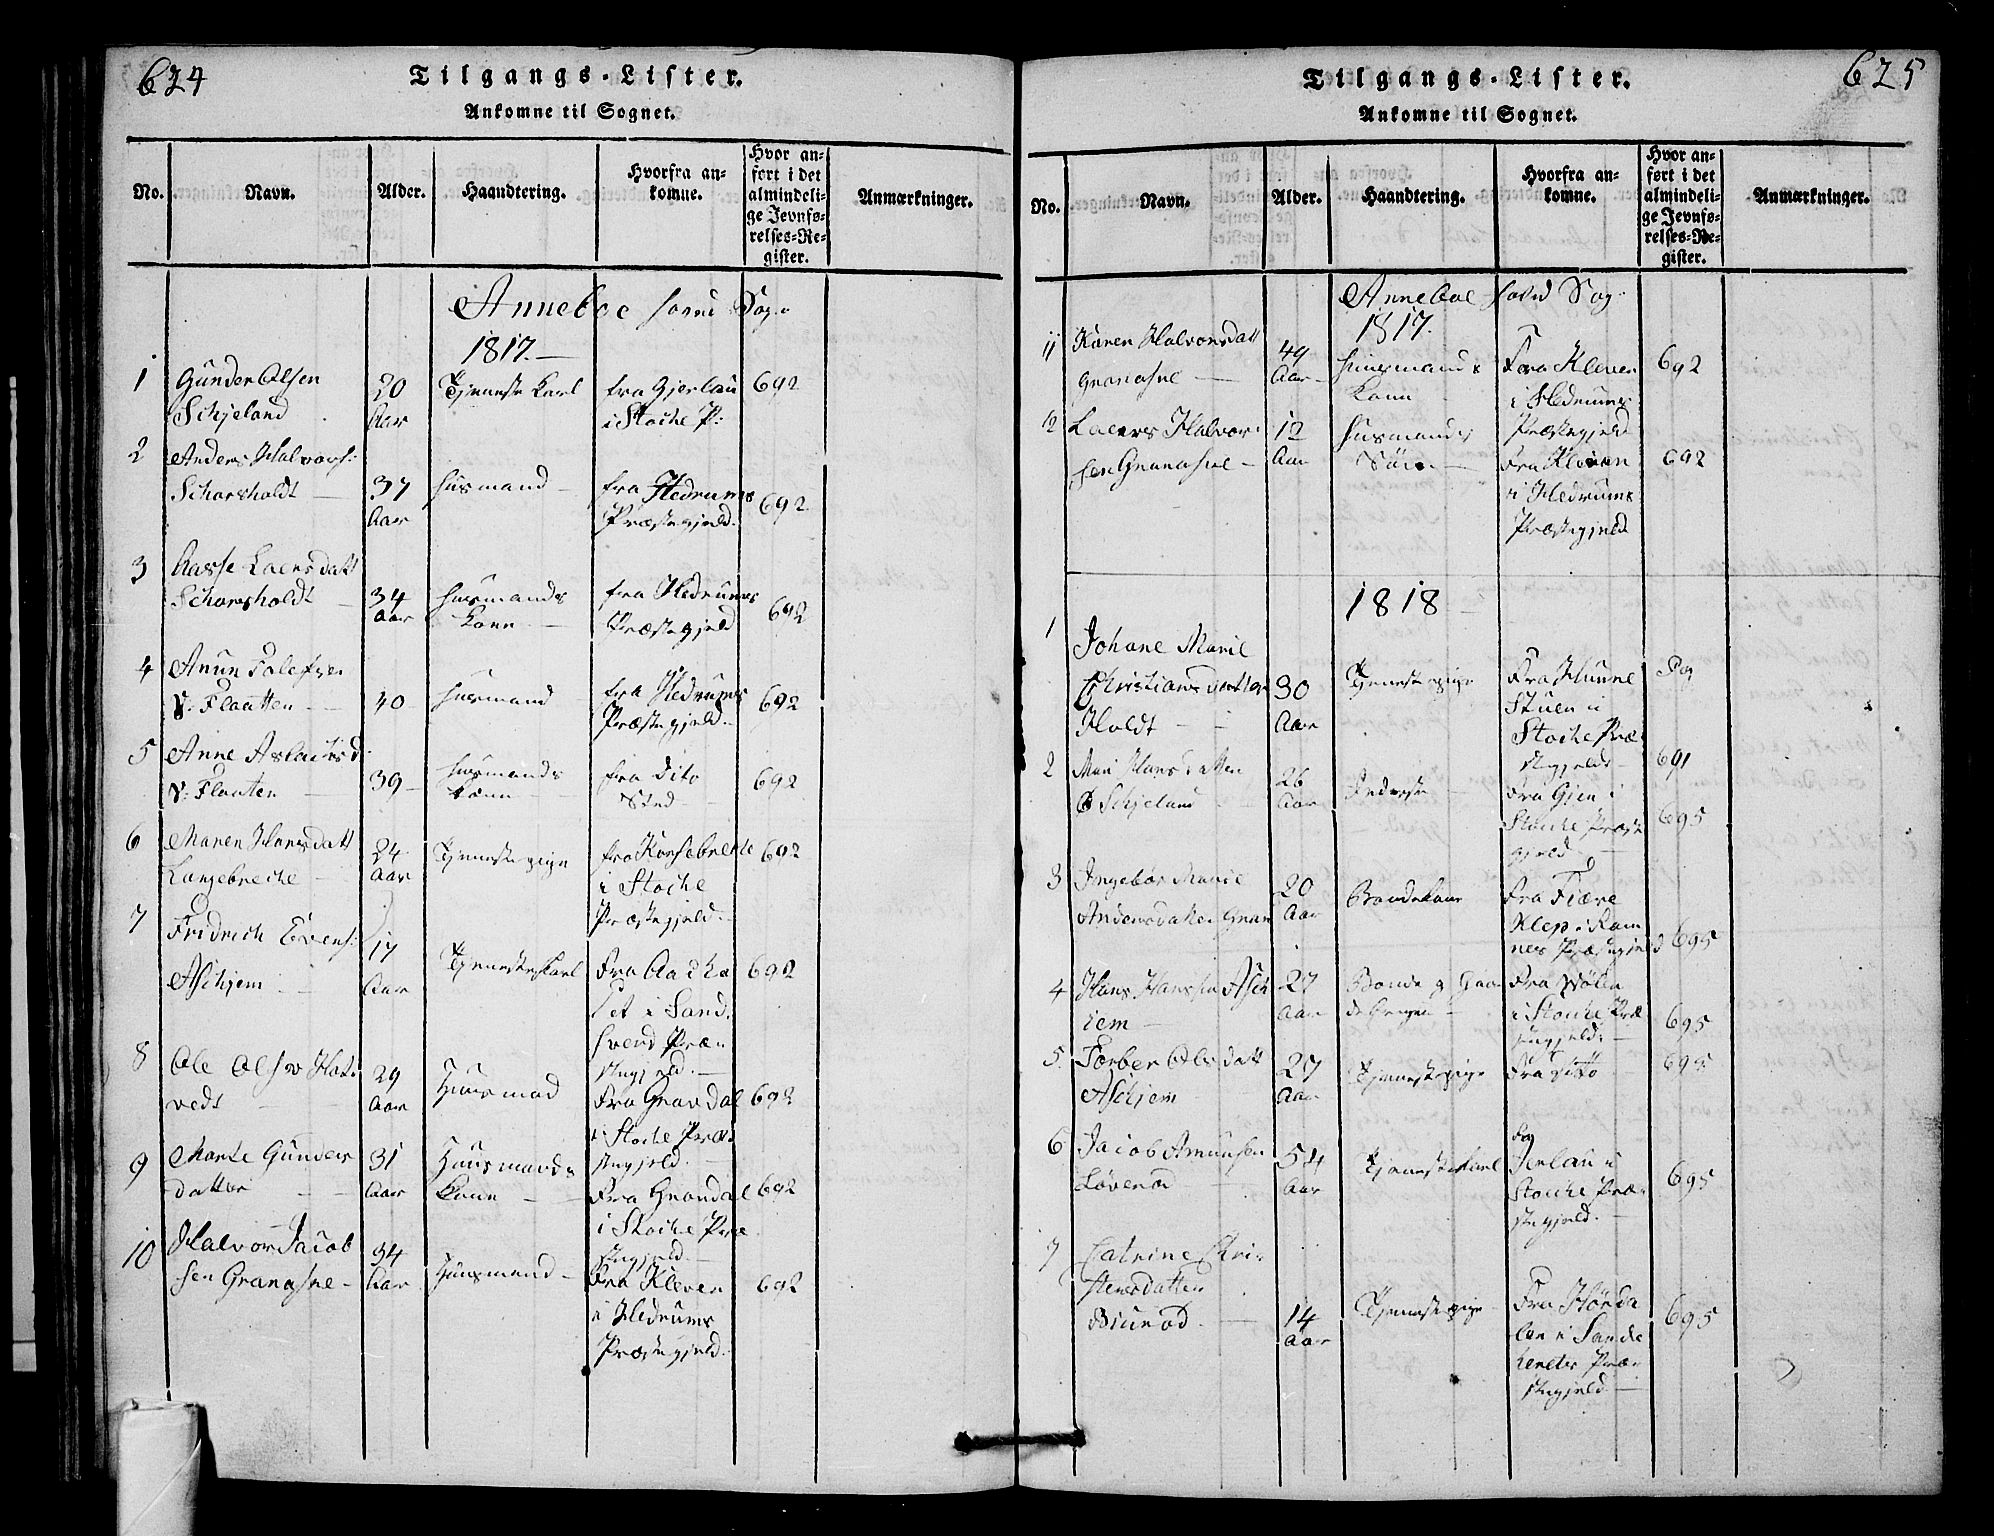 624
Tilgangs-Lister.
Ankomne til Sognet.
No.
Navn.
Alder.
Haandtering.
Hvorfra an-
komne.
Hvor an-
ført i det
almindeli-
ge Jevnfø-
relses-Re-
gister.
Anmærkninger.
Anneboe Sogn
1817.
1
Gunder Olsen
Schjeland
20
Aar
Tjeneste Karl
fra Gjerlau
i Stocke P:
692
2
Anders Halvors:
Schorsholdt
37
Aar
Husmand
fra Hedrums
Præstegjeld.
692
3
Aasse Laersdatt
Schorsholdt
34
Aar
Husmands
Kone
fra Hedrums
Præstegjeld
692
4
V: Flaatten
40
Husmand
fra Hedrums
Præstegjeld.
692
5
Anne Aslachsd.
V: Flaaten
39
Husmands
Kone
fra Dito
Sted
692
6
Maren Hansdatt
Langebreche
24
Aar
Tjenestepige
fra
i Stocke
Præstegjeld.
692
7
Fridrich Evens:
Aschjem
17
Aar
Tjenestekarl
Fra
i Sand
Præ-
stegjeld.
692
8
Ole Olsen
29
Aar
Huusmad
Fra Gravdal
i Stocke Præ
stegjeld.
692
9
Marte Gunders
datter
31
Aar
Huusmands
Kone
Fra
i Stocke Præ
stegjeld.
692
10
Halvor Jacob
sen Granasne
34
Aar
Huusmand
Fra Kleven
i Hedrums
Præstegjeld.
692
625
Tilgangs-Lister.
Ankomne til Sognet.
No.
Navn.
Alder.
Haandtering.
Hvorfra an-
komne.
Hvor an-
ført i det
almindeli-
ge Jevnfø-
relses-Re-
gister.
Anmærkninger.
Anneboe Sog
1817.
11
Karen Halvorsdatt
Granasne
49
Aar
Husmands
Kone
Fra Kleven
i Hedrums
Præstegjeld
692
12
Laers Halvor
sen Granasne
12
Aar
Husmands
Søn
Fra Kleven
i Hedrums
Præstegjeld
692
1818
1
Johane Marie
Christians datter
Holdt
30
Aar
Tjenestepige
Fra
Stuen i
Stocke Præ
stegjeld
2
Mari Hansdatter
Schjeland
26
Aar
Fra Gjen i
Stocke Præste
gjeld
691
695
3
Ingebor Marie
Andersdatter
20
Aar
Bondekone
Fra
Klep i Ram
nes Præstegjeld
695
4
Hans Hansen Asch
iem
27
Aar
Fra
i Stocke Præ
stegjeld.
695
5
Torber Olsdatt
Aschjem
27
Aar
Tjenestepige
Fra Dito
695
6
Jacob Amunsen
Løverød
54
Aar
Tjenestekarl
Fra
Jerlau i
Stocke Præ-
stegjeld.
695
7
Catrine Chri-
stensdatter
14
Aar
Tjenestepige
Fra
Præ-
stegjeld
695